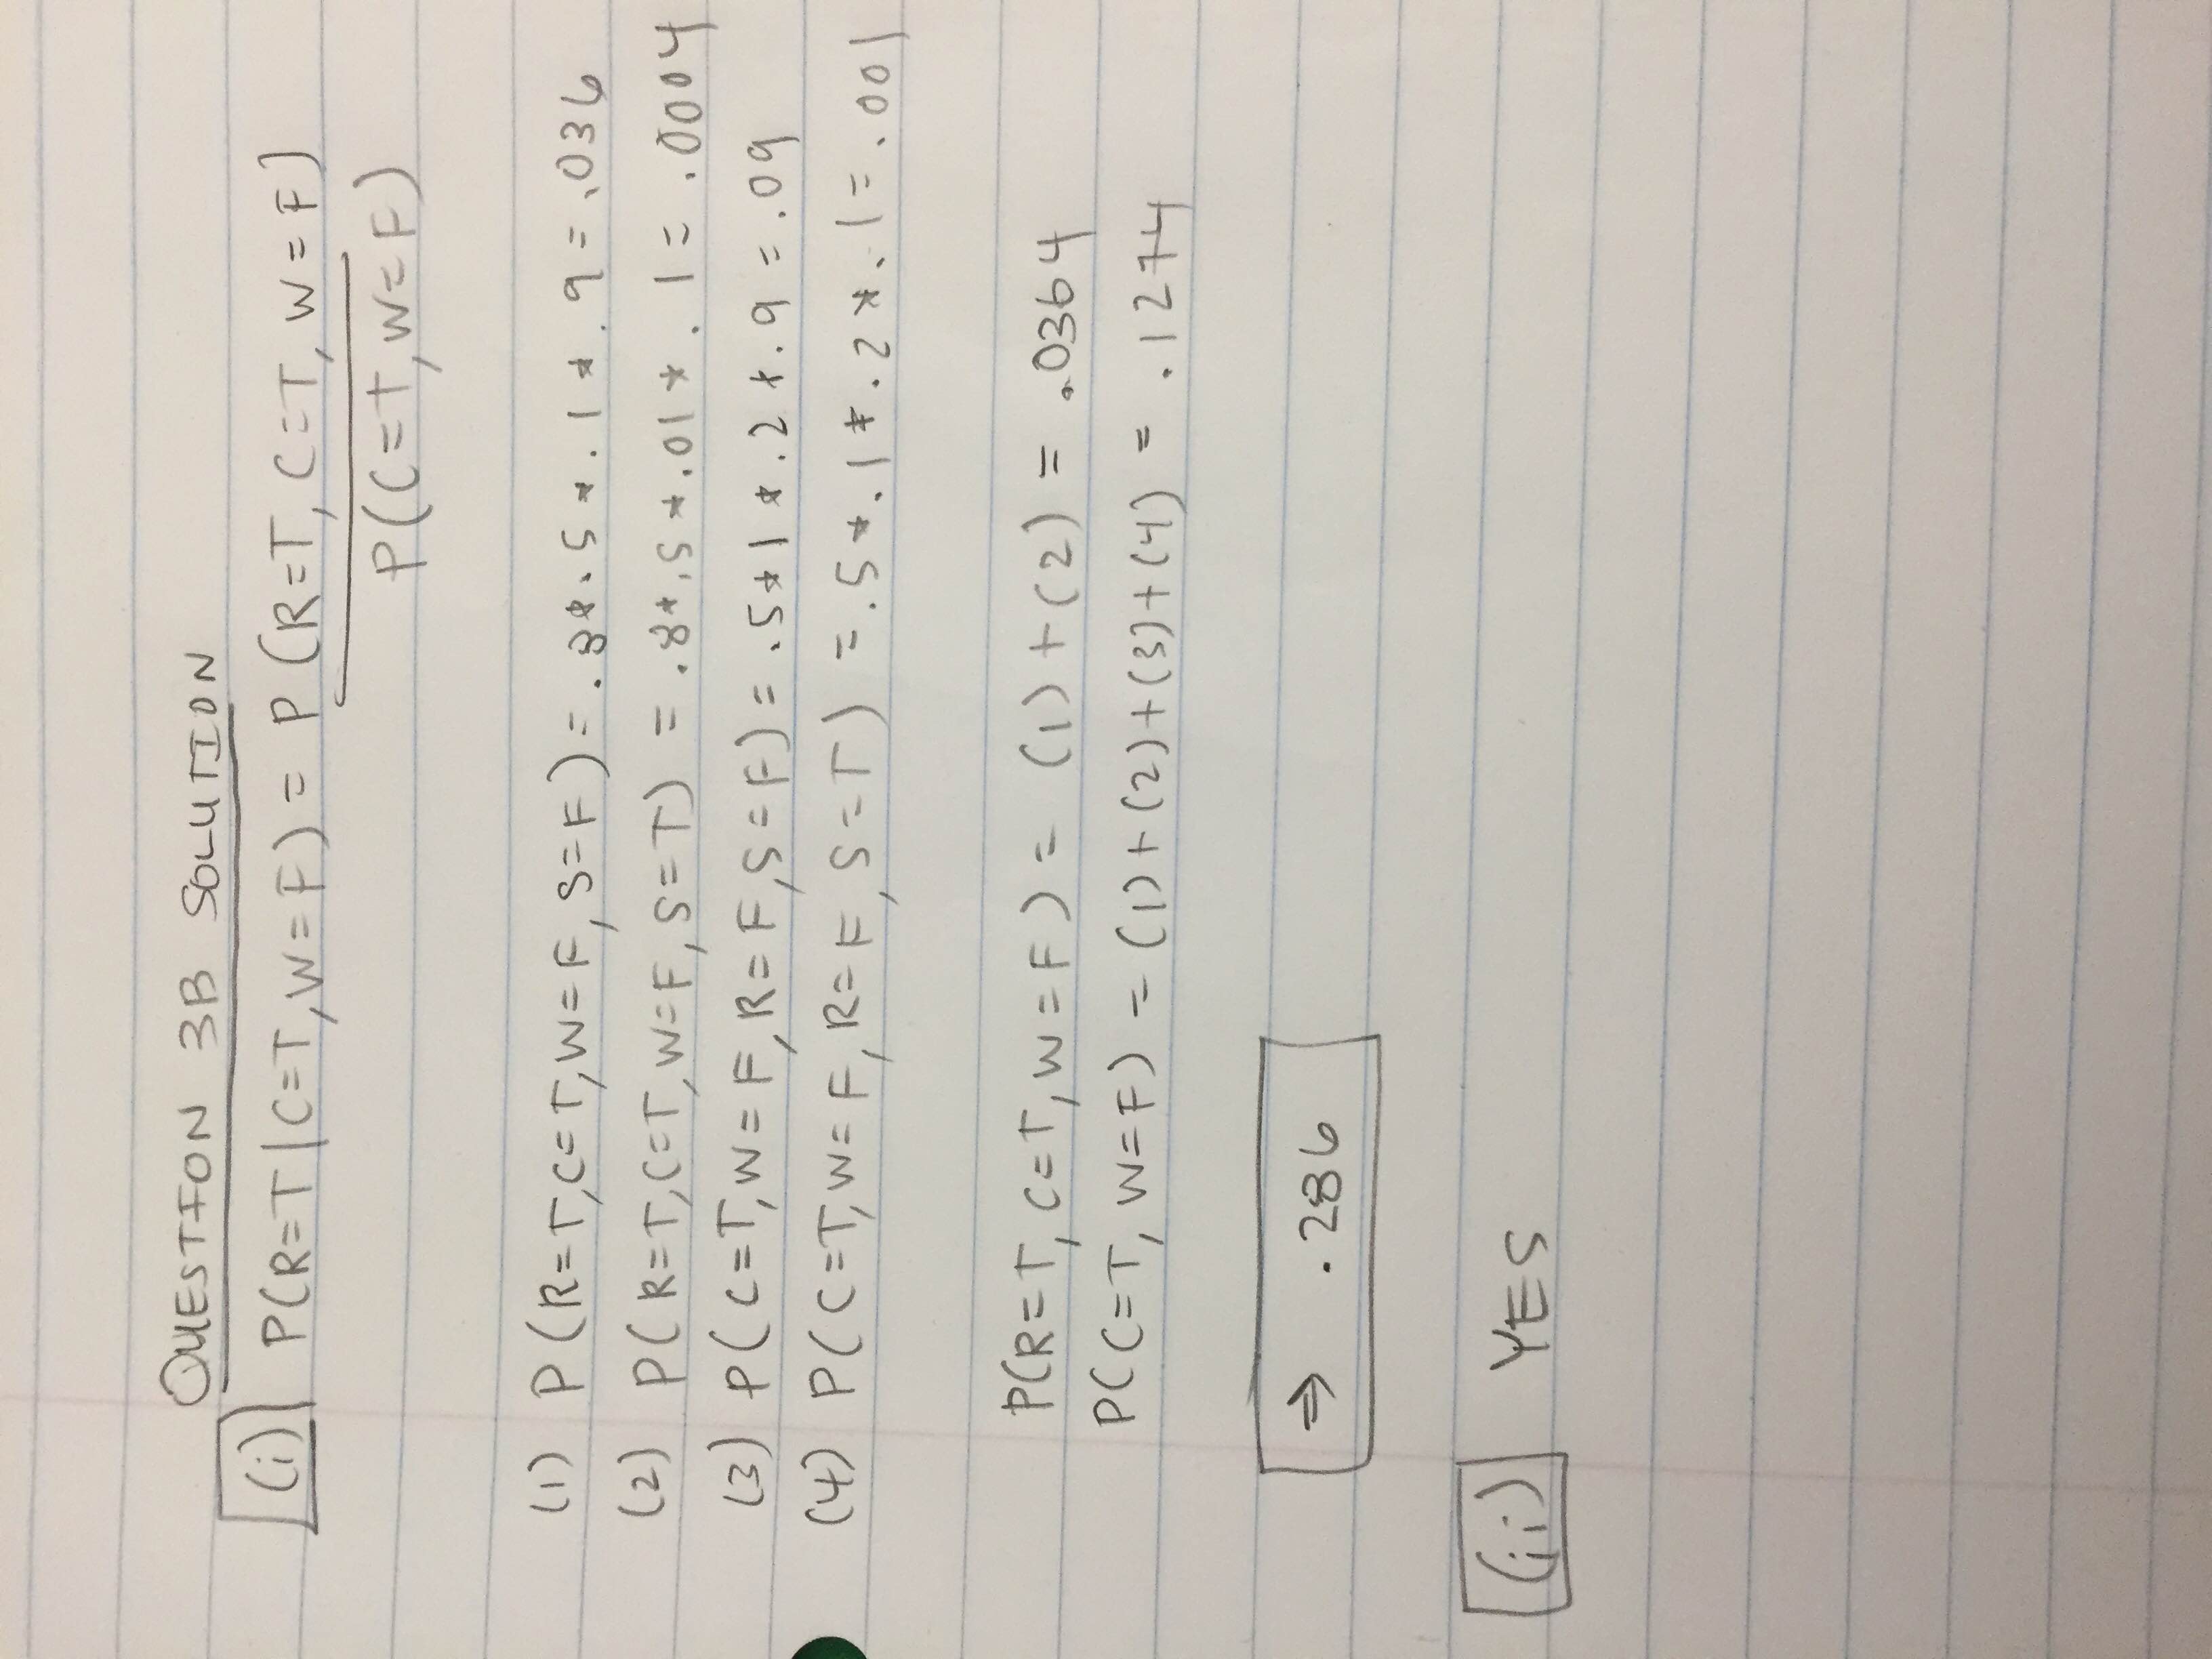 QUESTION 3B SOLUTION
(i) P(R=T|C=T,W=F) = P(R=T,C=T,W=F)
P(C=T,W=F)
(1) P(R=T,C=T,W=F,S=F) = .8*.5*.1*.9=.036
(2) P(R=T,C=T,W=F,S=T) = .8*.5*.01*.1=.0004
(3) P(C=T,W=F,R=F,S=F) = .5*1*.2*.9=.09
(4) P(C=T,W=F,R=F,S=T) = .5*.1*.2*.1=.001
P(R=T,C=T,W=F) = (1)+(2) = .0364
P(C=T,W=F) = (1)+(2)+(3)+(4) = .1274
⇒ .286
(ii) YES